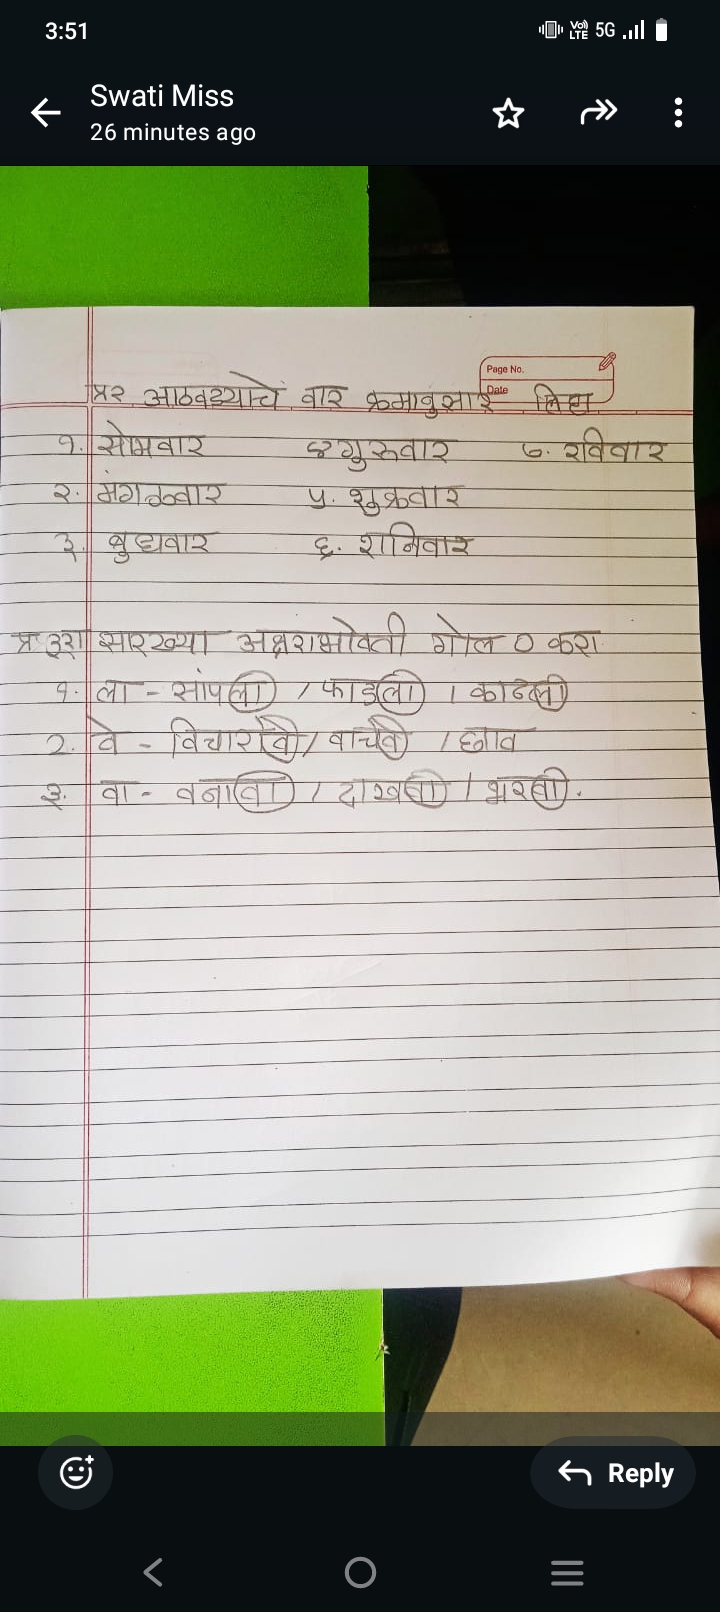 3:51
Vo) LTE 5G
Swati Miss
26 minutes ago
Page No.
Date
प्र२ आठवड्याचे वार क्रमानुसार लिहा
१. सोमवार ४ गुरुवार ७. रविवार
२. मंगळवार ५. शुक्रवार
३. बुधवार ६. शनिवार
प्र ३रा सारख्या अक्षराभोवती गोल O करा
१. ला - सांपला / फाडला / काढला
2. वे - विचारावे / वाचवे / छाव
३. वा - बनावा / दाखवा / भरवा.
Reply